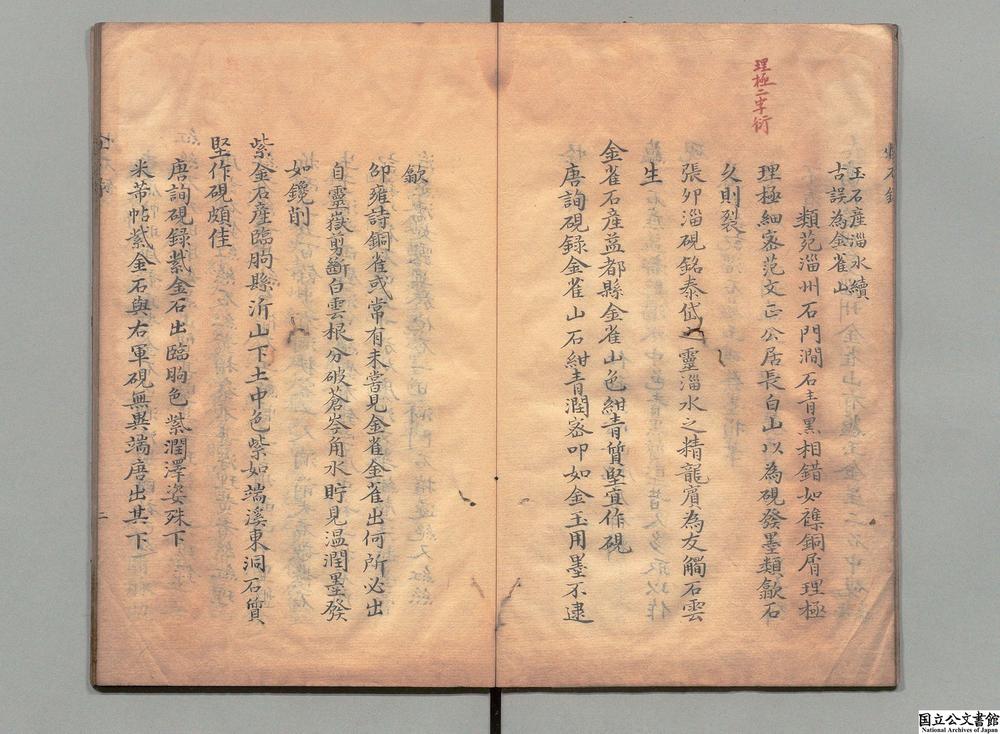 理極二字衍
玉石產淄水續
古誤為金雀山
類苑淄州石門澗石青黑相錯如雜銅屑理極
理極細密范文正公居長白山以為硯發墨類歙石
久則裂
張卯淄硯銘泰岱之靈淄水之精龍賓為友觸石雲
生
金雀石產益都縣金雀山色紺青質堅宜作硯
唐詢硯録金雀山石紺青潤密叩如金玉用墨不逮
歙
邵雍詩銅雀或常有未嘗見金雀金雀出何所必出
自靈嶽剪斷白雲根分破蒼岑角水貯見温潤墨發
如鑱削
紫金石產臨朐縣沂山下土中色紫如端溪東洞石質
堅作硯頗佳
唐詢硯録紫金石出臨朐色紫潤澤姿殊下
米芾帖紫金石與右軍硯無異端唐出其下
二
国立公文書館
National Archives of Japan